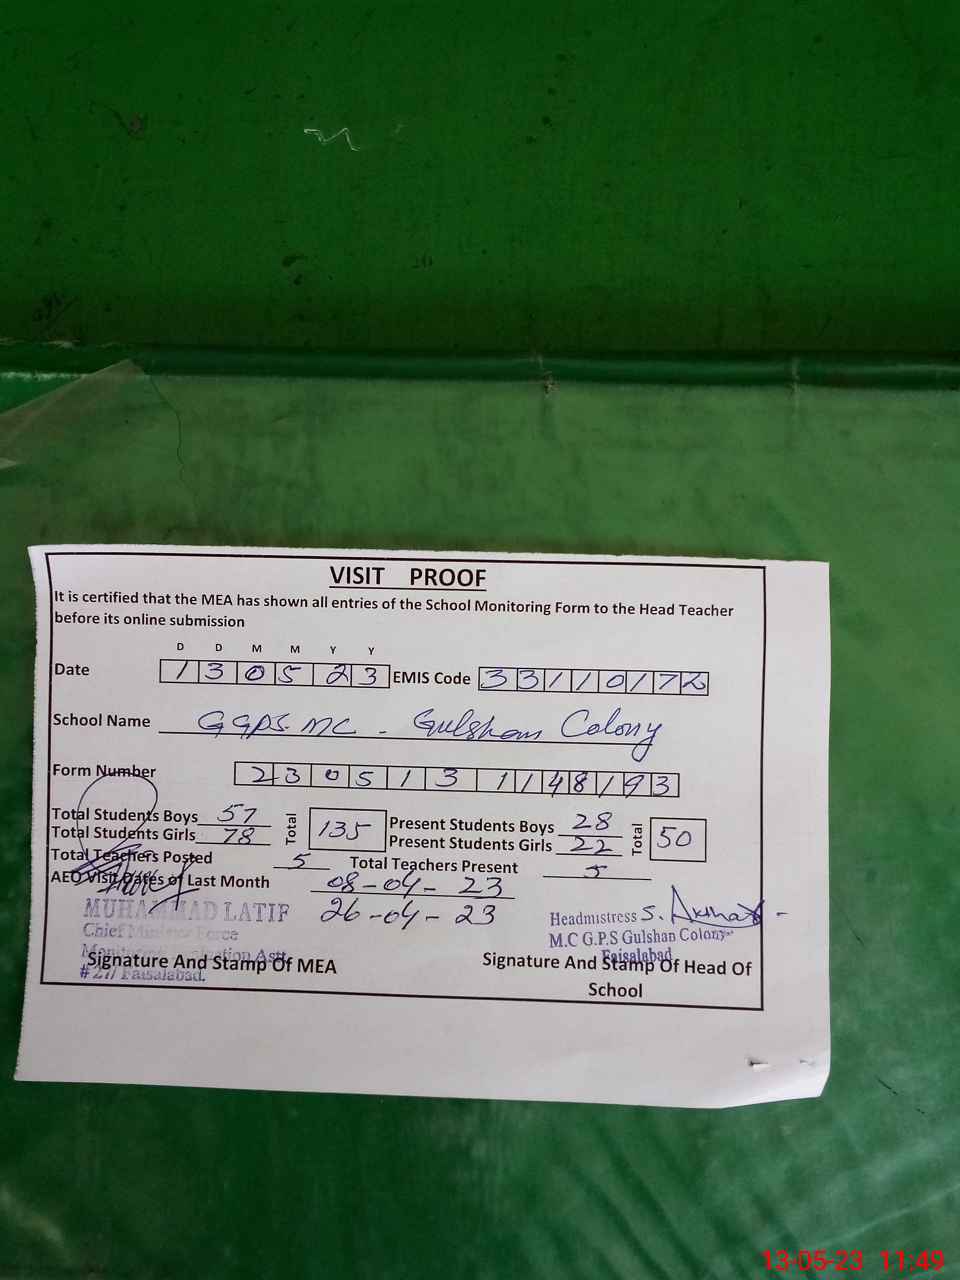 VISIT PROOF
It is certified that the MEA has shown all entries of the School Monitoring Form to the Head Teacher
before its online submission
D D M M Y Y
Date 1 3 0 5 2 3 EMIS Code 3 3 1 1 0 1 7 2
School Name GGPS. MC - Gulshan Colony
Form Number 2 3 0 5 1 3 1 1 4 8 1 9 3
Total Students Boys 57 Total 135 Present Students Boys 28 Total 50
Total Students Girls 78 Present Students Girls 22
Total Teachers Posted 5 Total Teachers Present 5
AEO Visit Dates of Last Month 08-04-23
26-04-23
MUHAMMAD LATIF
Chief Minister Force
Monitoring Evaluation Astt.
# 27/ Faisalabad.
Signature And Stamp Of MEA
Headmistress S. Akhtar
M.C G.P.S Gulshan Colony
Faisalabad
Signature And Stamp Of Head Of
School
13-05-23 11:49